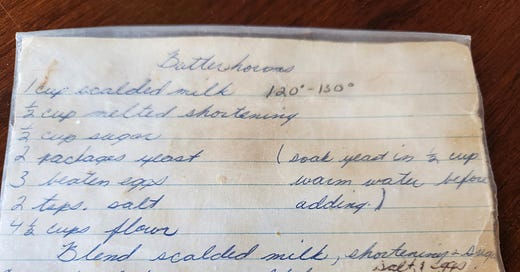 Butterhorns
1 cup scalded milk 120°-130°
½ cup melted shortening
½ cup sugar
2 packages yeast (soak yeast in ½ cup
3 beaten eggs warm water before
2 tsps. salt adding.)
4½ cups flour
Blend scalded milk, shortening + sugar
salt &